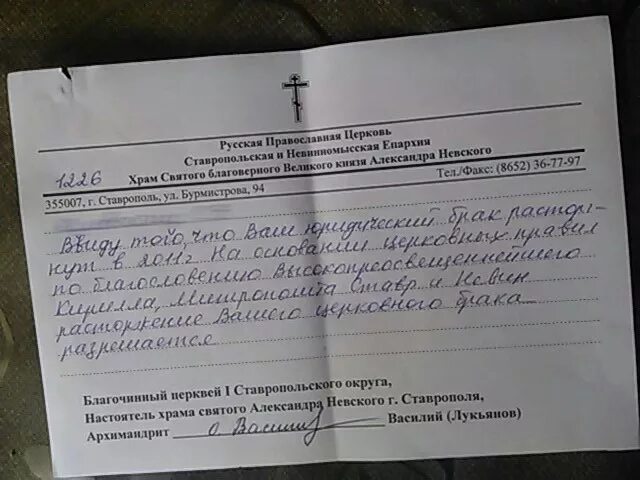 Русская Православная Церковь
Ставропольская и Невинномысская Епархия
Храм Святого благоверного Великого князя Александра Невского
1226
355007, г. Ставрополь, ул. Бурмистрова, 94 Тел./Факс: (8652) 36-77-97
Ввиду того, что Ваш юридический брак расторг-
нут в 2011г На основании церковных правил
по благословению Высокопреосвященнейшего
Кирилла, Митрополита Ставр и Невин
расторжение Вашего церковного брака
разрешается
Благочинный церквей I Ставропольского округа,
Настоятель храма святого Александра Невского г. Ставрополя,
Архимандрит о. Василий Василий (Лукьянов)